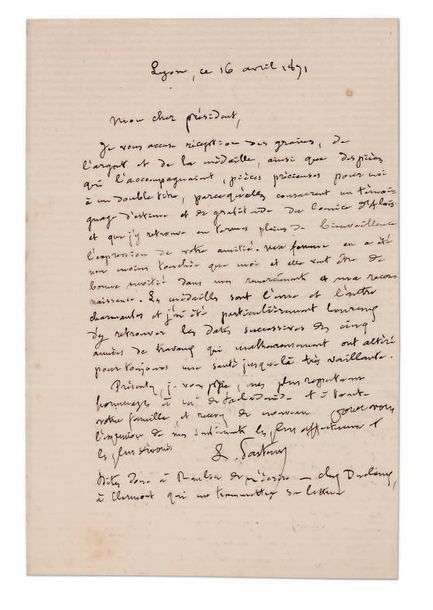 Lyon, ce 16 avril 1871
Mon cher président,
Je vous accuse réception des graines, de
l'argent et de la médaille, ainsi que des pièces
qui l'accompagnaient, pièces précieuses pour moi
à un double titre, parce qu'elles consacrent un témoi-
gnage d'estime et de gratitude du Comice d'Alais
et que j'y retrouve en termes pleins de bienveillance
l'expression de votre amitié. Ma femme en a été
non moins touchée que moi et elle veut être de
bonne moitié dans mes remerciements et ma recon-
naissance. Les médailles sont l'une et l'autre
charmantes et j'ai été particulièrement heureux
d'y retrouver les dates successives des cinq
années de travaux qui malheureusement ont altéré
pour toujours une santé jusque là très vaillante.
Présentez, je vous prie, mes plus respectueux
hommages à de Lachadenède et à toute
votre famille, et recevez de nouveau pour vous
l'expression de mes sentiments les plus affectueux et
les plus dévoués
L. Pasteur
Dites donc à de chez Duclaux,
à Clermont qui me transmettra sa lettre